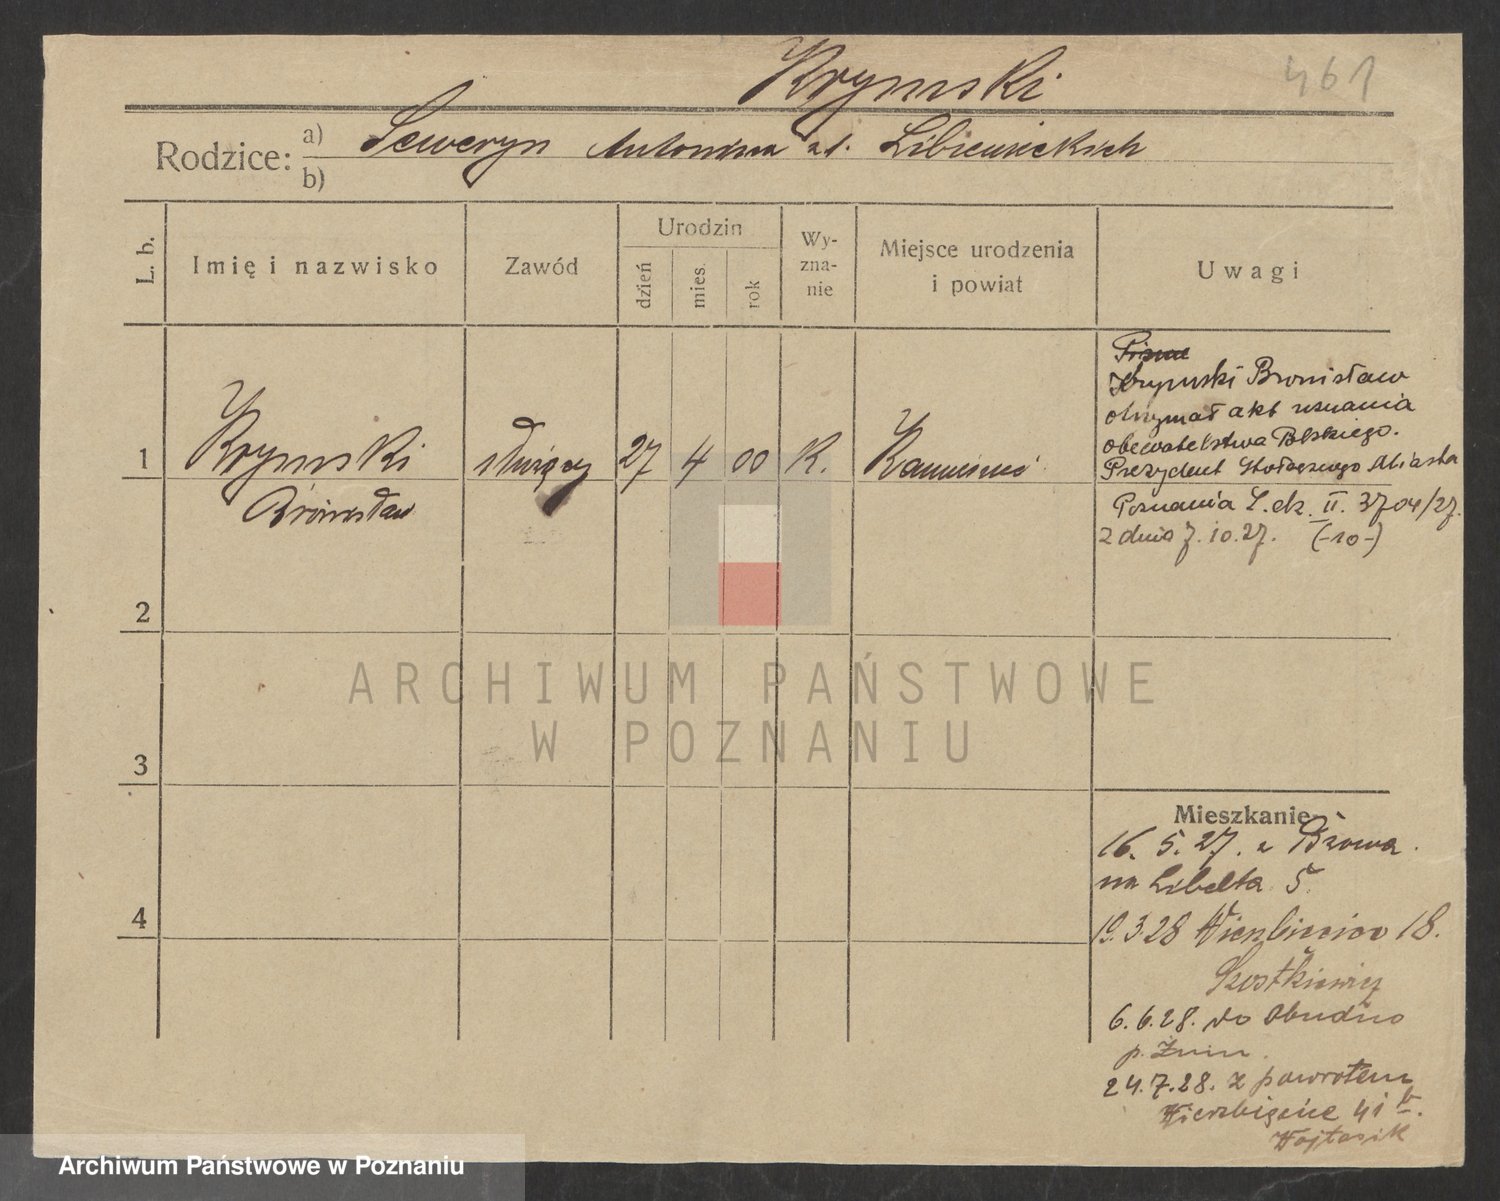 Krymski
461
Rodzice: a) Seweryn Antonina z d. Libiszewskich
b)
L. b.
Imię i nazwisko
Zawód
Urodzin
dzień
mies.
rok
Wy-
zna-
nie
Miejsce urodzenia
i powiat
Uwagi
1
Krymski
Bronisław
służący
27
4
00
K.
Pismo
Krymski Bronisław
otrzymał akt uznania
obywatelstwa Polskiego.
Prezydent Stołecznego Miasta
Poznania L. dz. II. 3704/27.
z dnia 7.10.27. (-10-)
2
3
4
Mieszkanie
16. 5. 27. z
na Libelta 5.
19.3.28 Wierzbięcice 18.
Szostkiewicz
6.6.28. do Obudno
p. Żnin.
24.7.28. z powrotem
Wierzbięcice 41 b.
Wojtasik
ARCHIWUM PAŃSTWOWE
W POZNANIU
Archiwum Państwowe w Poznaniu